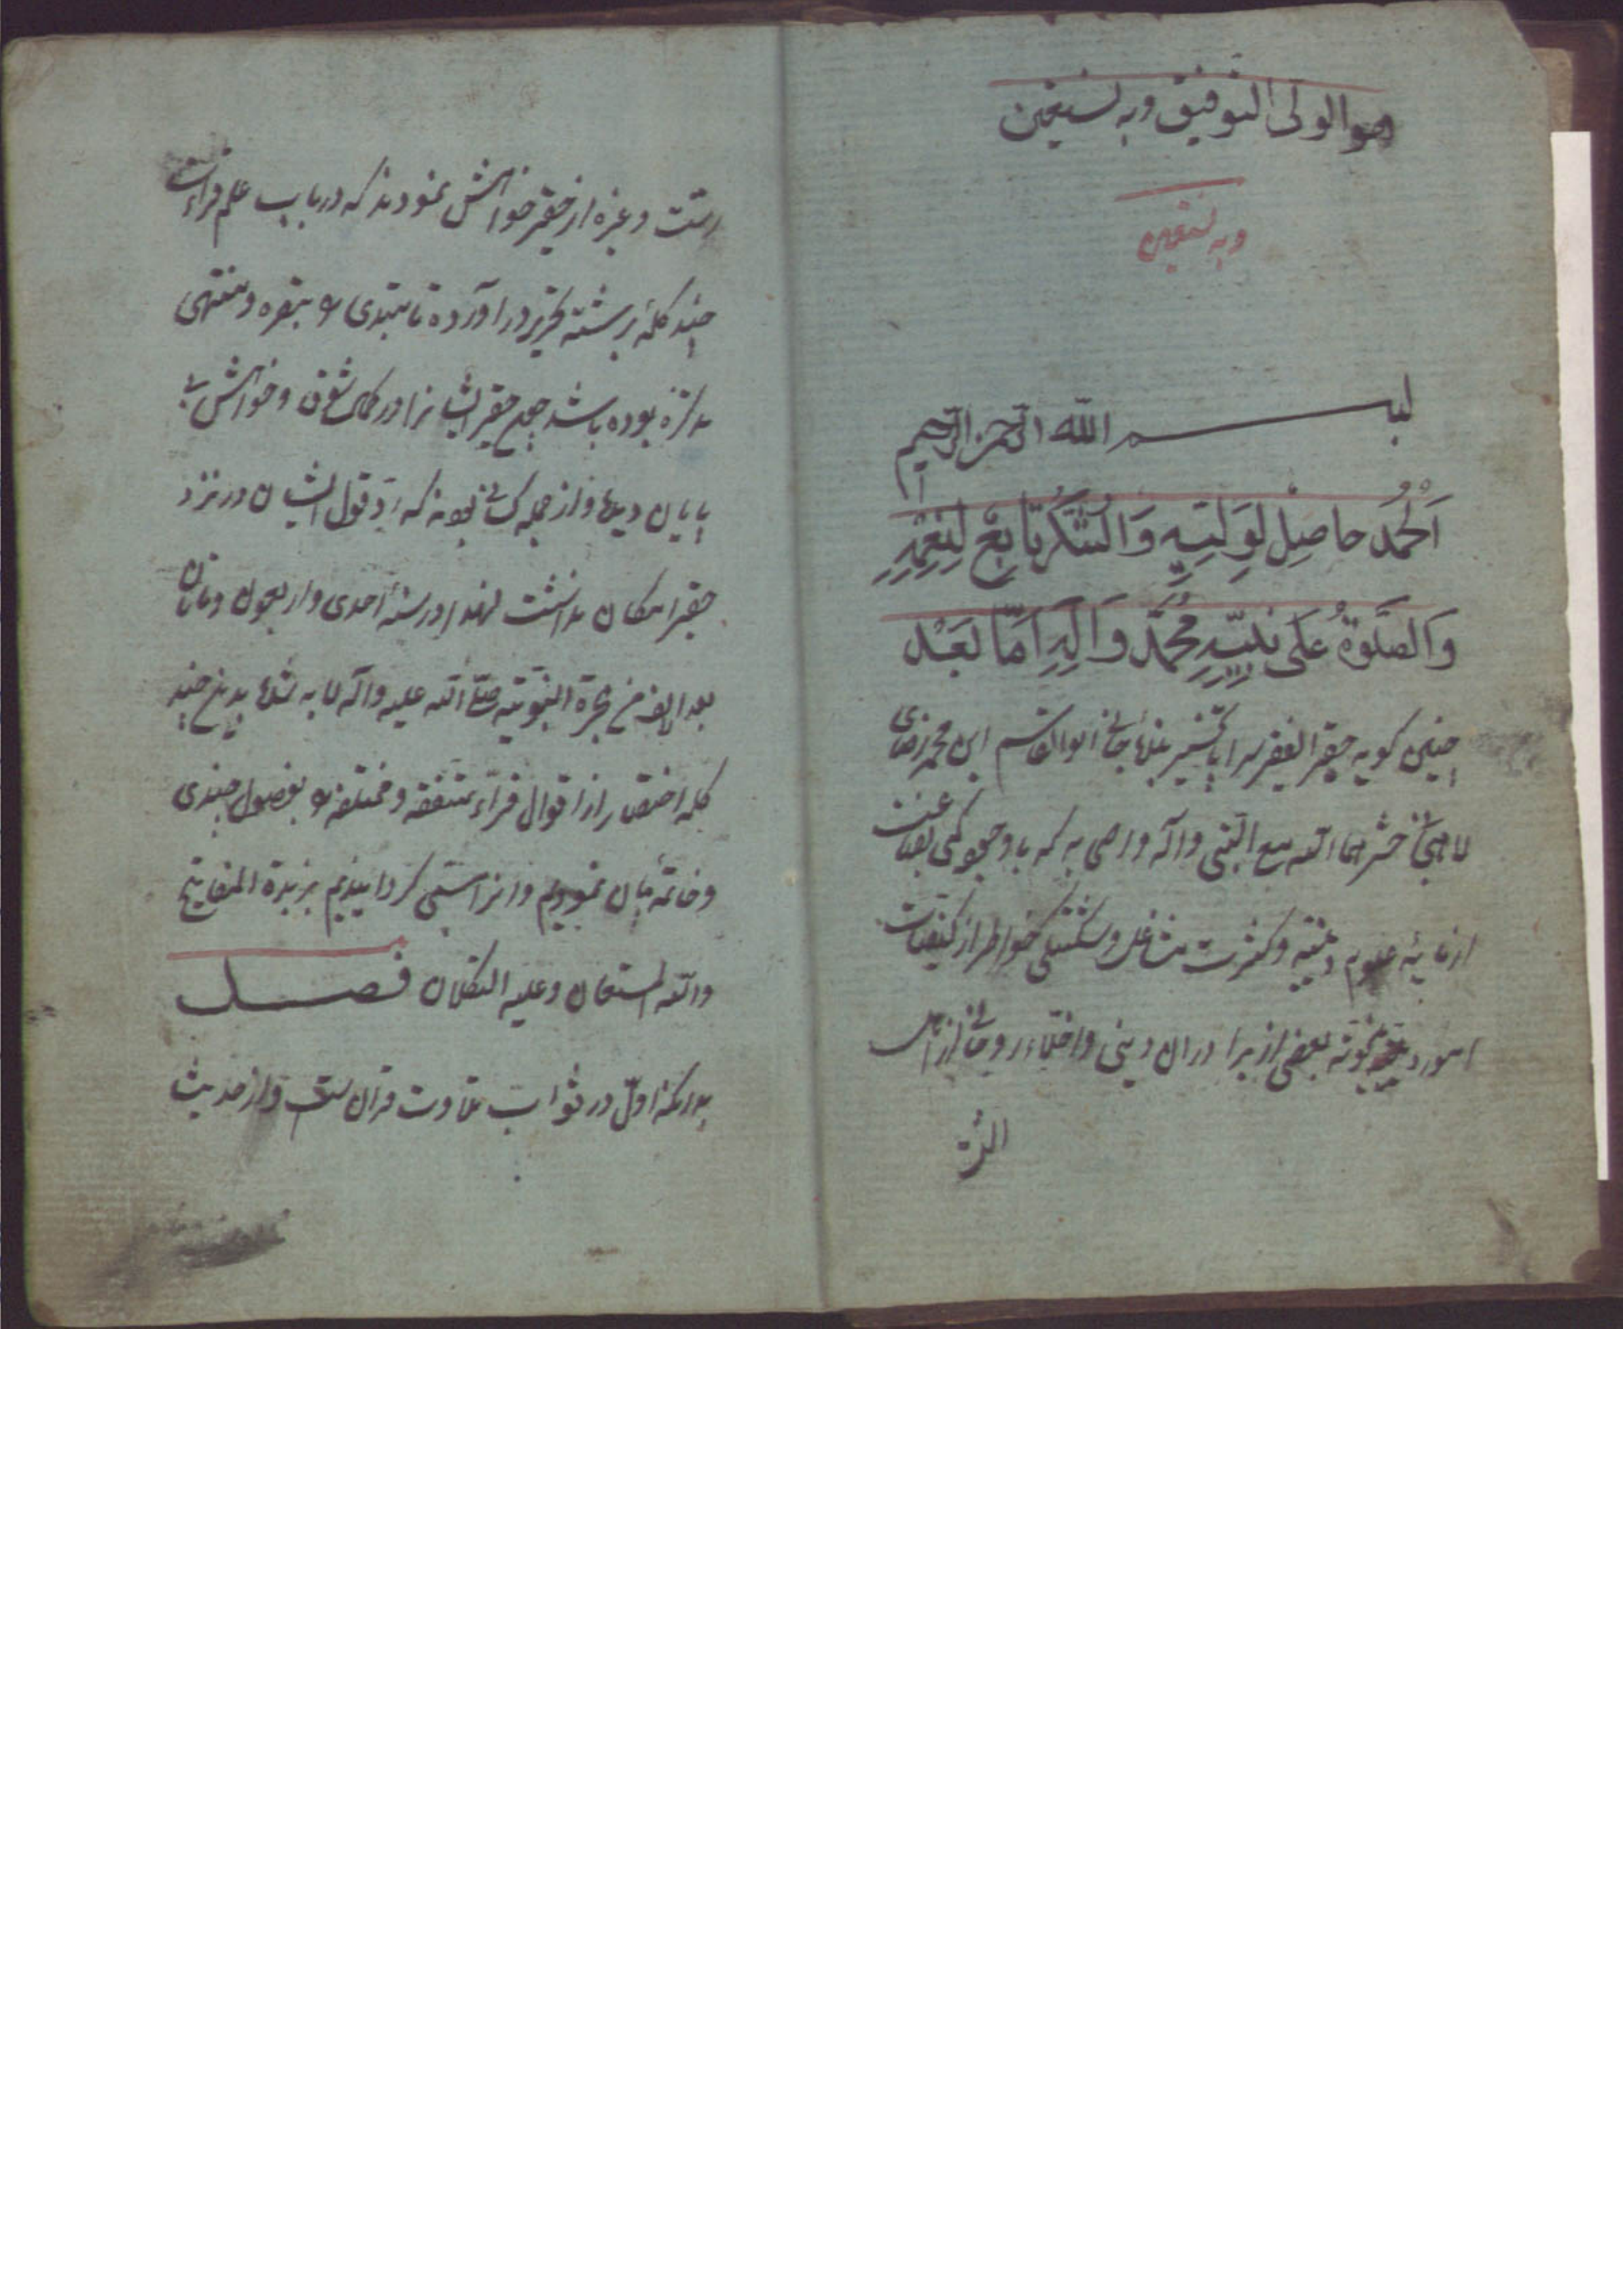 هو الولی التوفیق وبه نستعین
وبه نستعین
بسم الله الرحمن الرحیم
اَلْحَمْدُ حاصِل لِوَلِیِّهِ وَالشُّکْرُ تابِعٌ لِنِعَمِهِ
وَالصَّلوةُ عَلی نَبِیِّهِ مُحَمَّدٍ وَآلِهِ اَمّا بَعْد
چنین کوید حقیر الفقیر ابوالقاسم ابن محمد رضای
لاهیجی حشرهما الله مع النبی وآله که با وجود کمی بضاعت
از علوم دینیه وکثرت مشاغل وشکستکی خواطر از کیفیات
امور بعضی از برادران دینی واخلاء روحانی از اهل
الرّشت
رشت وغیره از حقیر خواهش نمودند که در باب علم قراءت
چند کلمهٔ برشته تحریر در آورده تا مبتدی را تبصره ومنتهی
را تذکره بوده باشد چون حقیر ایشانرا در کمال شوق وخواهش بی
پایان دیدم واز جمله کسانی بودند که ردّ قول ایشان در نزد
حقیر امکان نداشت لهذا در سنهٔ احدی واربعون ومأتان
بعد الالف من هجرة النبویّه صلّی الله علیه وآله چند
کلمه اختصار از اقوال قراء متفقه ومختلفه را بفصول چندی
وخاتمهٔ بیان نمودیم وانرا مسمی کردانیدیم بزبدة المفاتیح
والله المستعان وعلیه التکلان فصل
بدانکه اوّل در ثواب تلاوت قران است واز حدیث